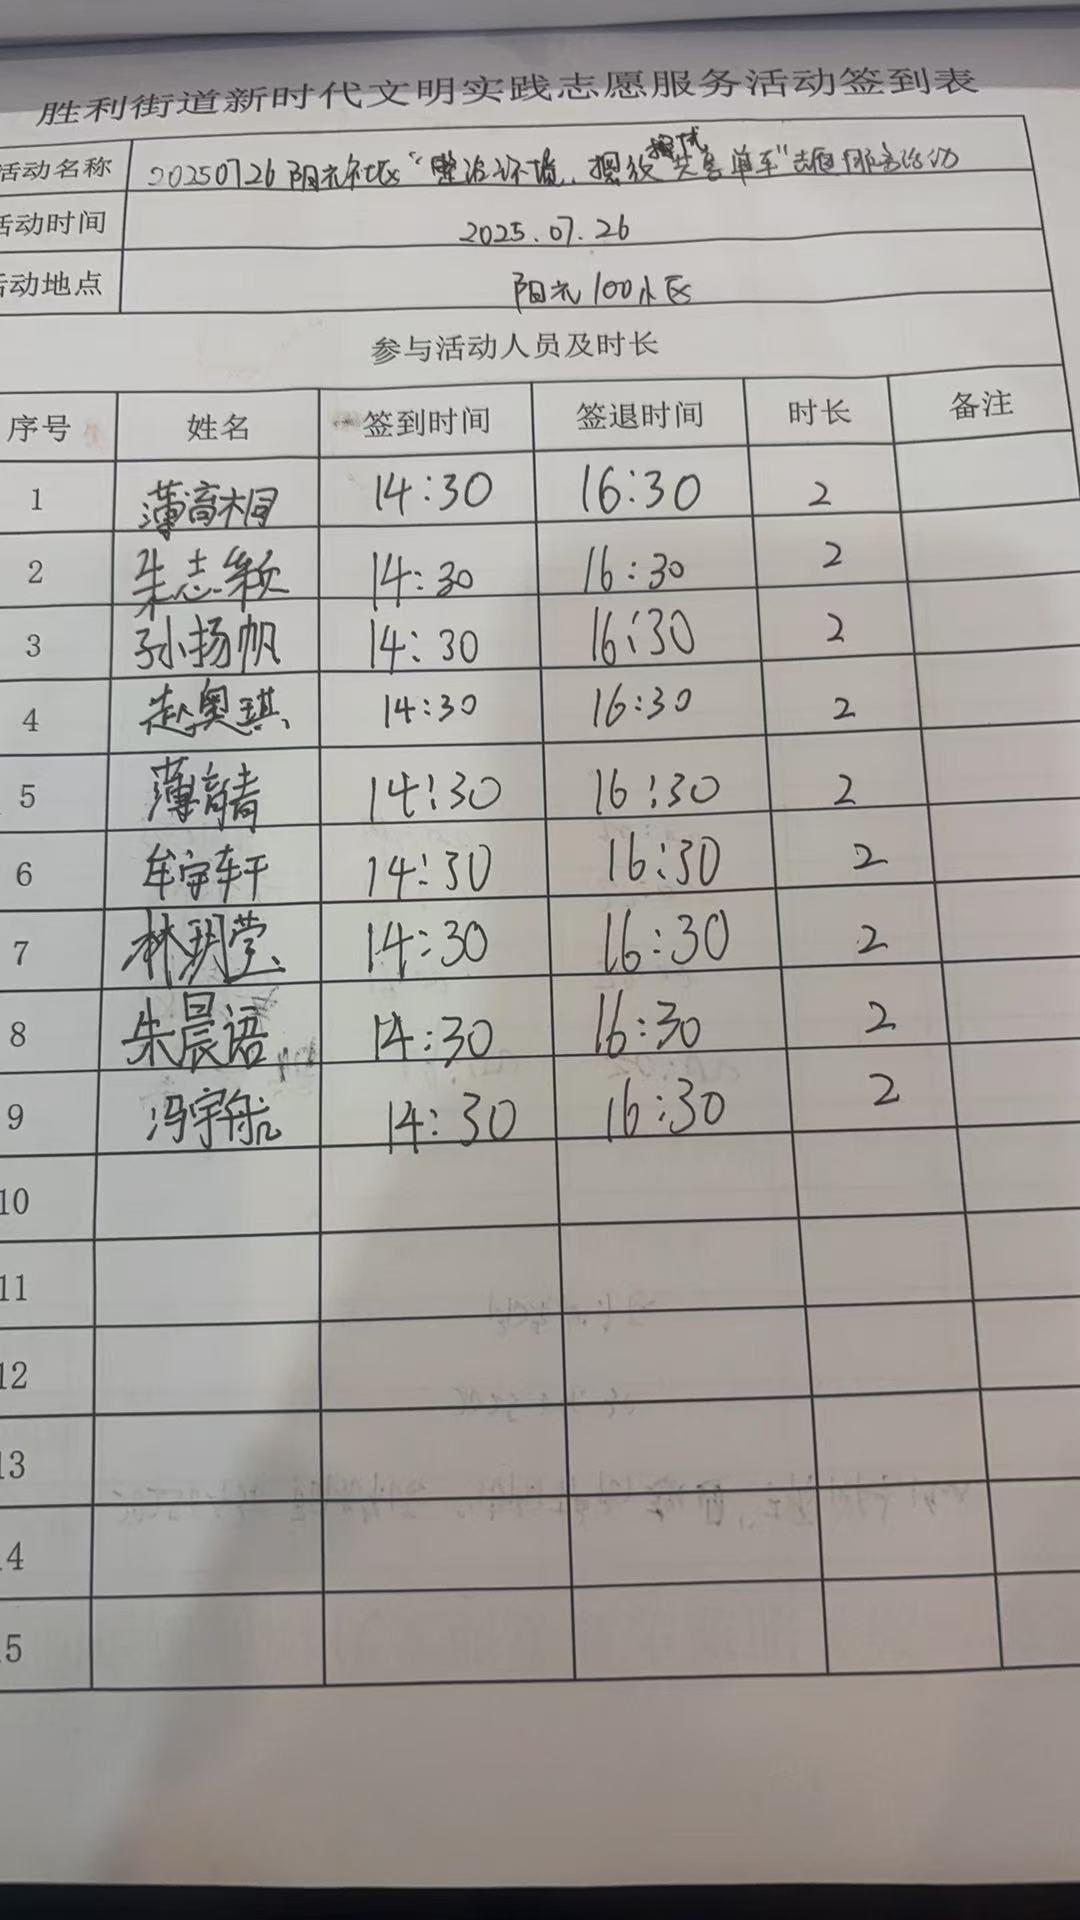 胜利街道新时代文明实践志愿服务活动签到表
活动名称 20250726阳光社区“整治环境、摆放擦拭共享单车”志愿服务活动
活动时间 2025.07.26
活动地点 阳光100小区
参与活动人员及时长
序号 姓名 签到时间 签退时间 时长 备注
1 薄斎桐 14:30 16:30 2
2 朱志颖 14:30 16:30 2
3 孙扬帆 14:30 16:30 2
4 赵奥琪 14:30 16:30 2
5 14:30 16:30 2
6 牟宇轩 14:30 16:30 2
7 林玥莹 14:30 16:30 2
8 朱晨语 14:30 16:30 2
9 冯宇航 14:30 16:30 2
10
11
12
13
14
15